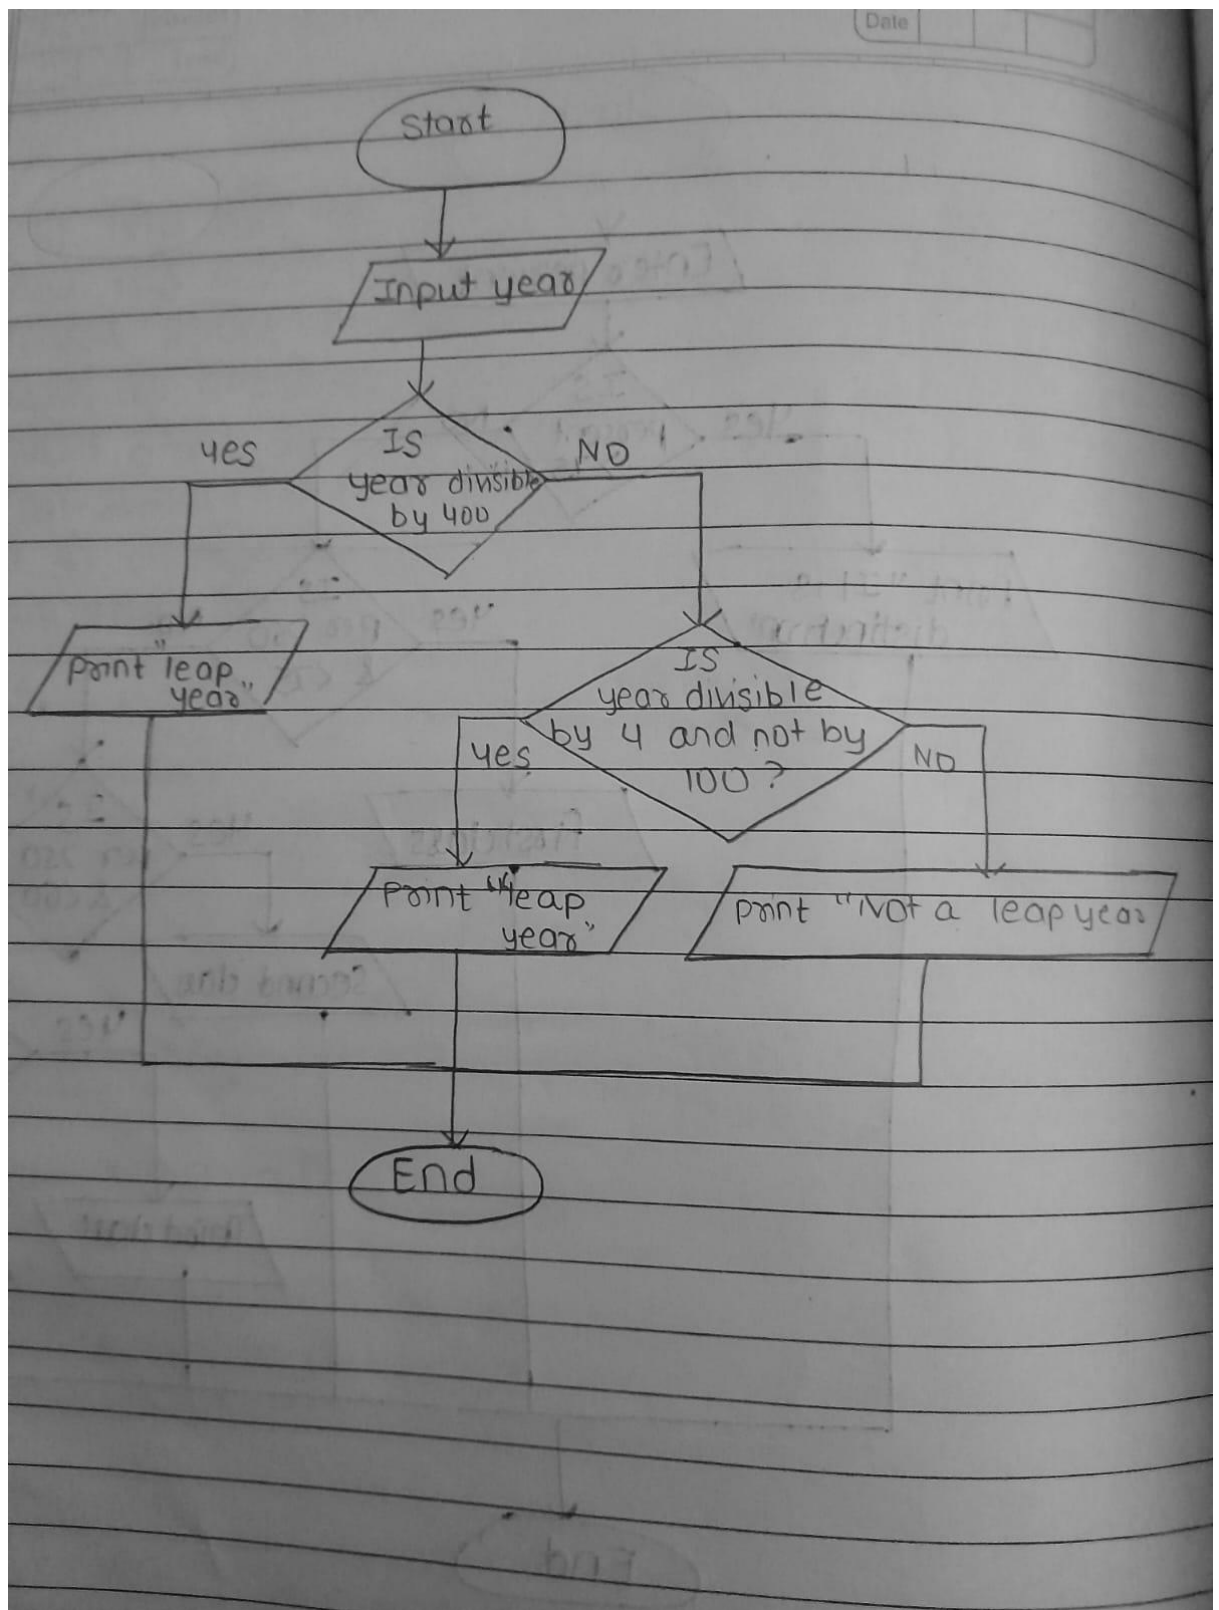 Date
Start
Input year
IS
year divisible
by 400
yes
NO
print "leap
year"
IS
year divisible
by 4 and not by
100?
yes
NO
print "leap
year"
print "Not a leap year
End